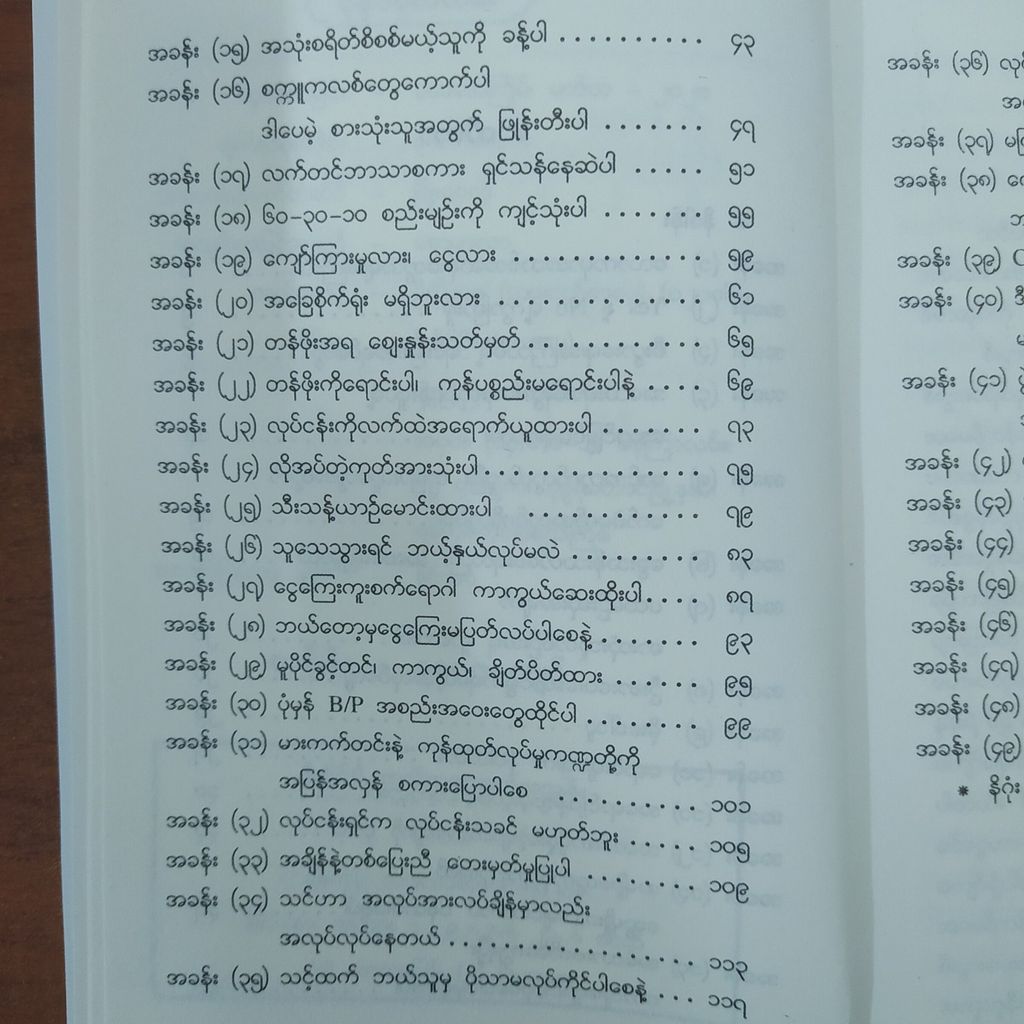 အခန်း (၁၅) အသုံးစရိတ်စိစစ်မယ့်သူကို ခန့်ပါ .......... ၄၃
အခန်း (၁၆) စက္ကူကလစ်တွေကောက်ပါ
ဒါပေမဲ့ စားသုံးသူအတွက် ဖြုန်းတီးပါ ....... ၄၇
အခန်း (၁၇) လက်တင်ဘာသာစကား ရှင်သန်နေဆဲပါ ..... ၅၁
အခန်း (၁၈) ၆၀-၃၀-၁၀ စည်းမျဉ်းကို ကျင့်သုံးပါ ....... ၅၅
အခန်း (၁၉) ကျော်ကြားမှုလား၊ ငွေလား ............. ၅၉
အခန်း (၂၀) အခြေစိုက်ရုံး မရှိဘူးလား .............. ၆၁
အခန်း (၂၁) တန်ဖိုးအရ ဈေးနှုန်းသတ်မှတ် ............ ၆၅
အခန်း (၂၂) တန်ဖိုးကိုရောင်းပါ၊ ကုန်ပစ္စည်းမရောင်းပါနဲ့ .... ၆၉
အခန်း (၂၃) လုပ်ငန်းကိုလက်ထဲအရောက်ယူထားပါ ....... ၇၃
အခန်း (၂၄) လိုအပ်တဲ့ကုတ်အားသုံးပါ ............... ၇၅
အခန်း (၂၅) သီးသန့်ယာဉ်မောင်းထားပါ ............ ၇၉
အခန်း (၂၆) သူသေသွားရင် ဘယ့်နှယ်လုပ်မလဲ ......... ၈၃
အခန်း (၂၇) ငွေကြေးကူးစက်ရောဂါ ကာကွယ်ဆေးထိုးပါ.... ၈၇
အခန်း (၂၈) ဘယ်တော့မှငွေကြေးမပြတ်လပ်ပါစေနဲ့ ....... ၉၃
အခန်း (၂၉) မူပိုင်ခွင့်တင်၊ ကာကွယ်၊ ချိတ်ပိတ်ထား ...... ၉၅
အခန်း (၃၀) ပုံမှန် B/P အစည်းအဝေးတွေထိုင်ပါ ........ ၉၉
အခန်း (၃၁) မားကက်တင်းနဲ့ ကုန်ထုတ်လုပ်မှုကဏ္ဍတို့ကို
အပြန်အလှန် စကားပြောပါစေ .......... ၁၀၁
အခန်း (၃၂) လုပ်ငန်းရှင်က လုပ်ငန်းသခင် မဟုတ်ဘူး ..... ၁၀၅
အခန်း (၃၃) အချိန်နဲ့တစ်ပြေးညီ တေးမှတ်မှုပြုပါ ........ ၁၀၉
အခန်း (၃၄) သင်ဟာ အလုပ်အားလပ်ချိန်မှာလည်း
အလုပ်လုပ်နေတယ် .................. ၁၁၃
အခန်း (၃၅) သင့်ထက် ဘယ်သူမှ ပိုသာမလုပ်ကိုင်ပါစေနဲ့ ... ၁၁၇
အခန်း (၃၆)
အခန်း (၃၇)
အခန်း (၃၈)
အခန်း (၃၉)
အခန်း (၄၀)
အခန်း (၄၁)
အခန်း (၄၂)
အခန်း (၄၃)
အခန်း (၄၄)
အခန်း (၄၅)
အခန်း (၄၆)
အခန်း (၄၇)
အခန်း (၄၈)
အခန်း (၄၉)
* နိဂုံး